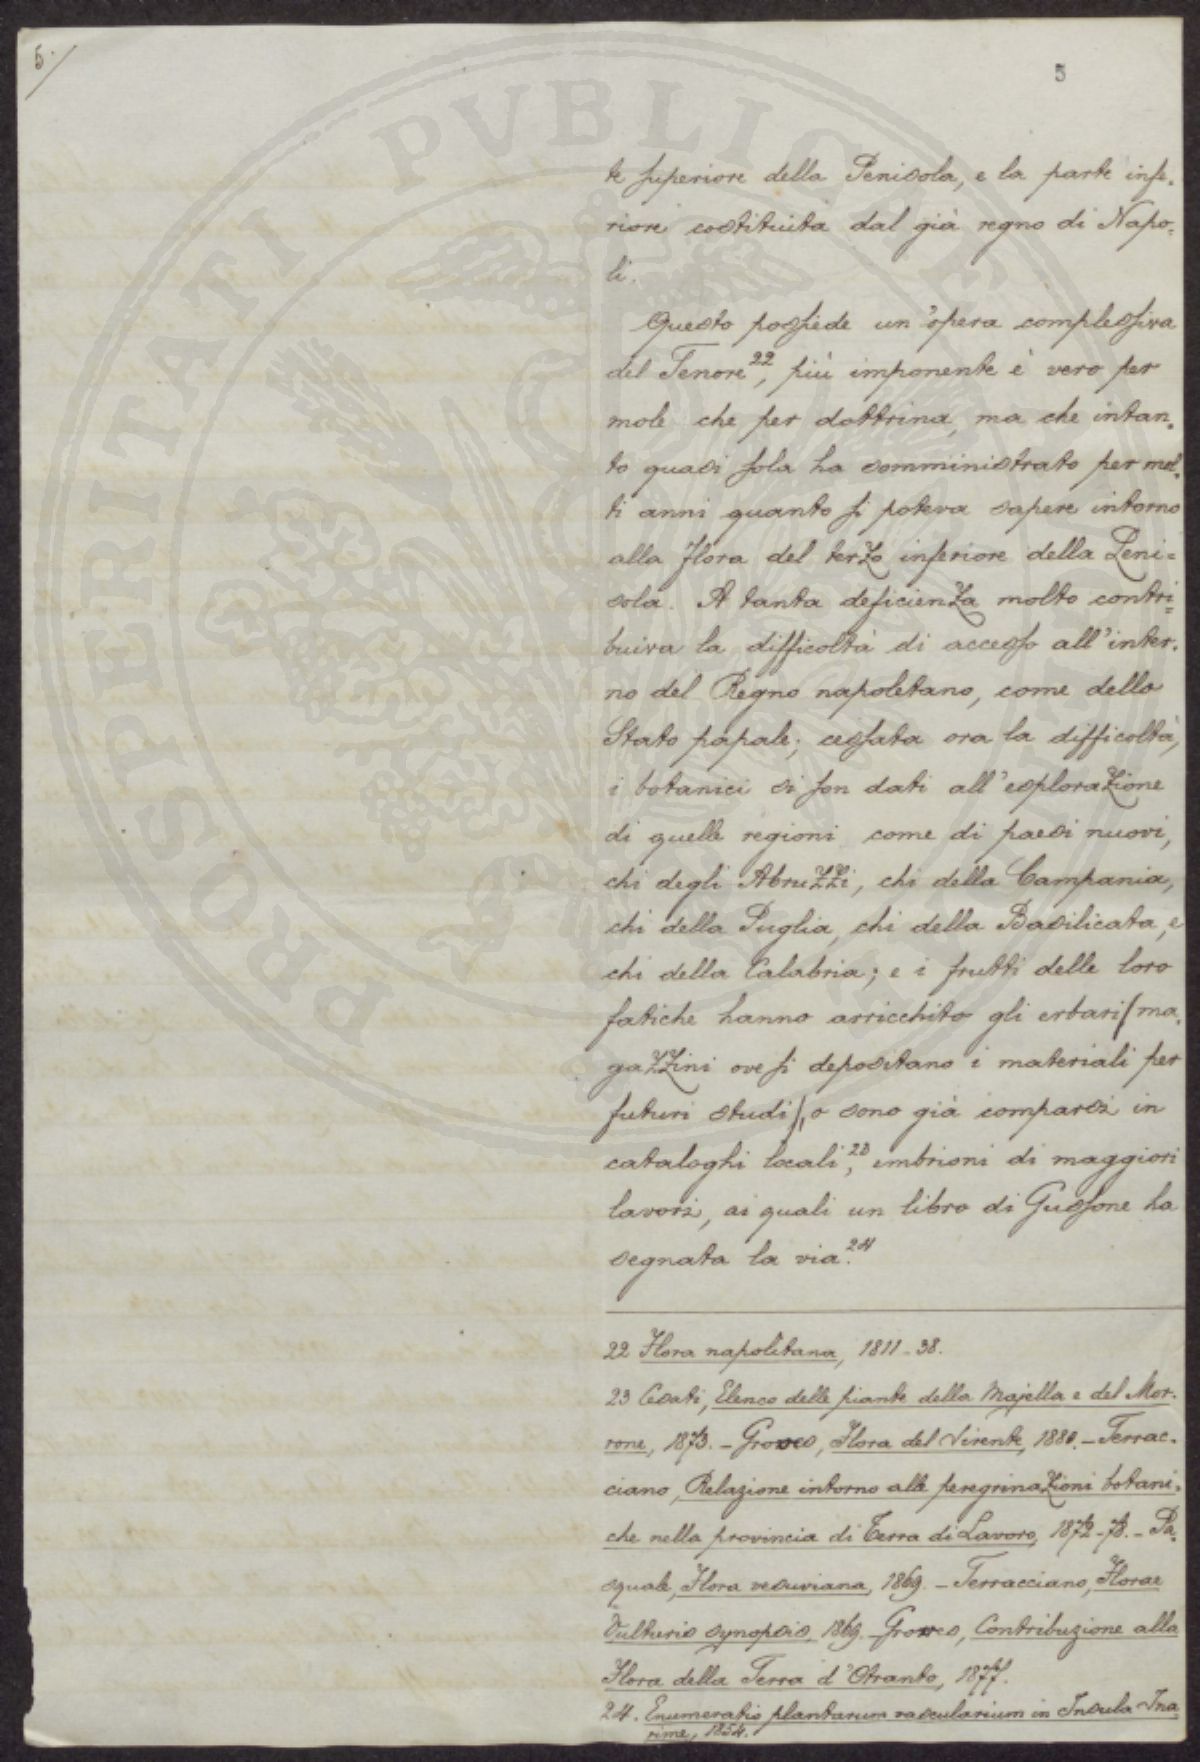 5.
5
te superiore della Penisola, e la parte infe-
riore costituita dal già regno di Napo-
li.
Questo possiede un'opera complessiva
del Tenore 22, più imponente è vero per
mole che per dottrina, ma che intan-
to quasi sola ha somministrato per mol-
ti anni quanto si poteva sapere intorno
alla flora del terzo inferiore della Peni=
sola. A tanta deficienza molto contri=
buiva la difficoltà di accesso all'inter-
no del Regno napoletano, come dello
Stato papale; cessata ora la difficoltà,
i botanici si son dati all'esplorazione
di quelle regioni come di paesi nuovi,
chi degli Abruzzi, chi della Campania,
chi della Puglia, chi della Basilicata, e
chi della Calabria; e i frutti delle loro
fatiche hanno arricchito gli erbari (ma-
gazzini ove si depositano i materiali per
futuri studi), o sono già comparsi in
cataloghi locali, 23 embrioni di maggiori
lavori, ai quali un libro di Gussone ha
segnata la via. 24
22 Flora napolitana, 1811-38.
23 Cesati, Elenco delle piante della Majella e del Mor-
rone, 1873. – Groves, Flora del Sirente, 1880. – Terrac-
ciano, Relazione intorno alle peregrinazioni botani-
che nella provincia di Terra di Lavoro, 1872-73. – Pa-
squale, Flora vesuviana, 1869. – Terracciano, Florae
Vulturis synopsis, 1869. – Groves, Contribuzione alla
Flora della Terra d'Otranto, 1877.
24. Enumeratio plantarum vascularium in Insula Ina
rime, 1854.
PROSPERITATI PVBLICAE